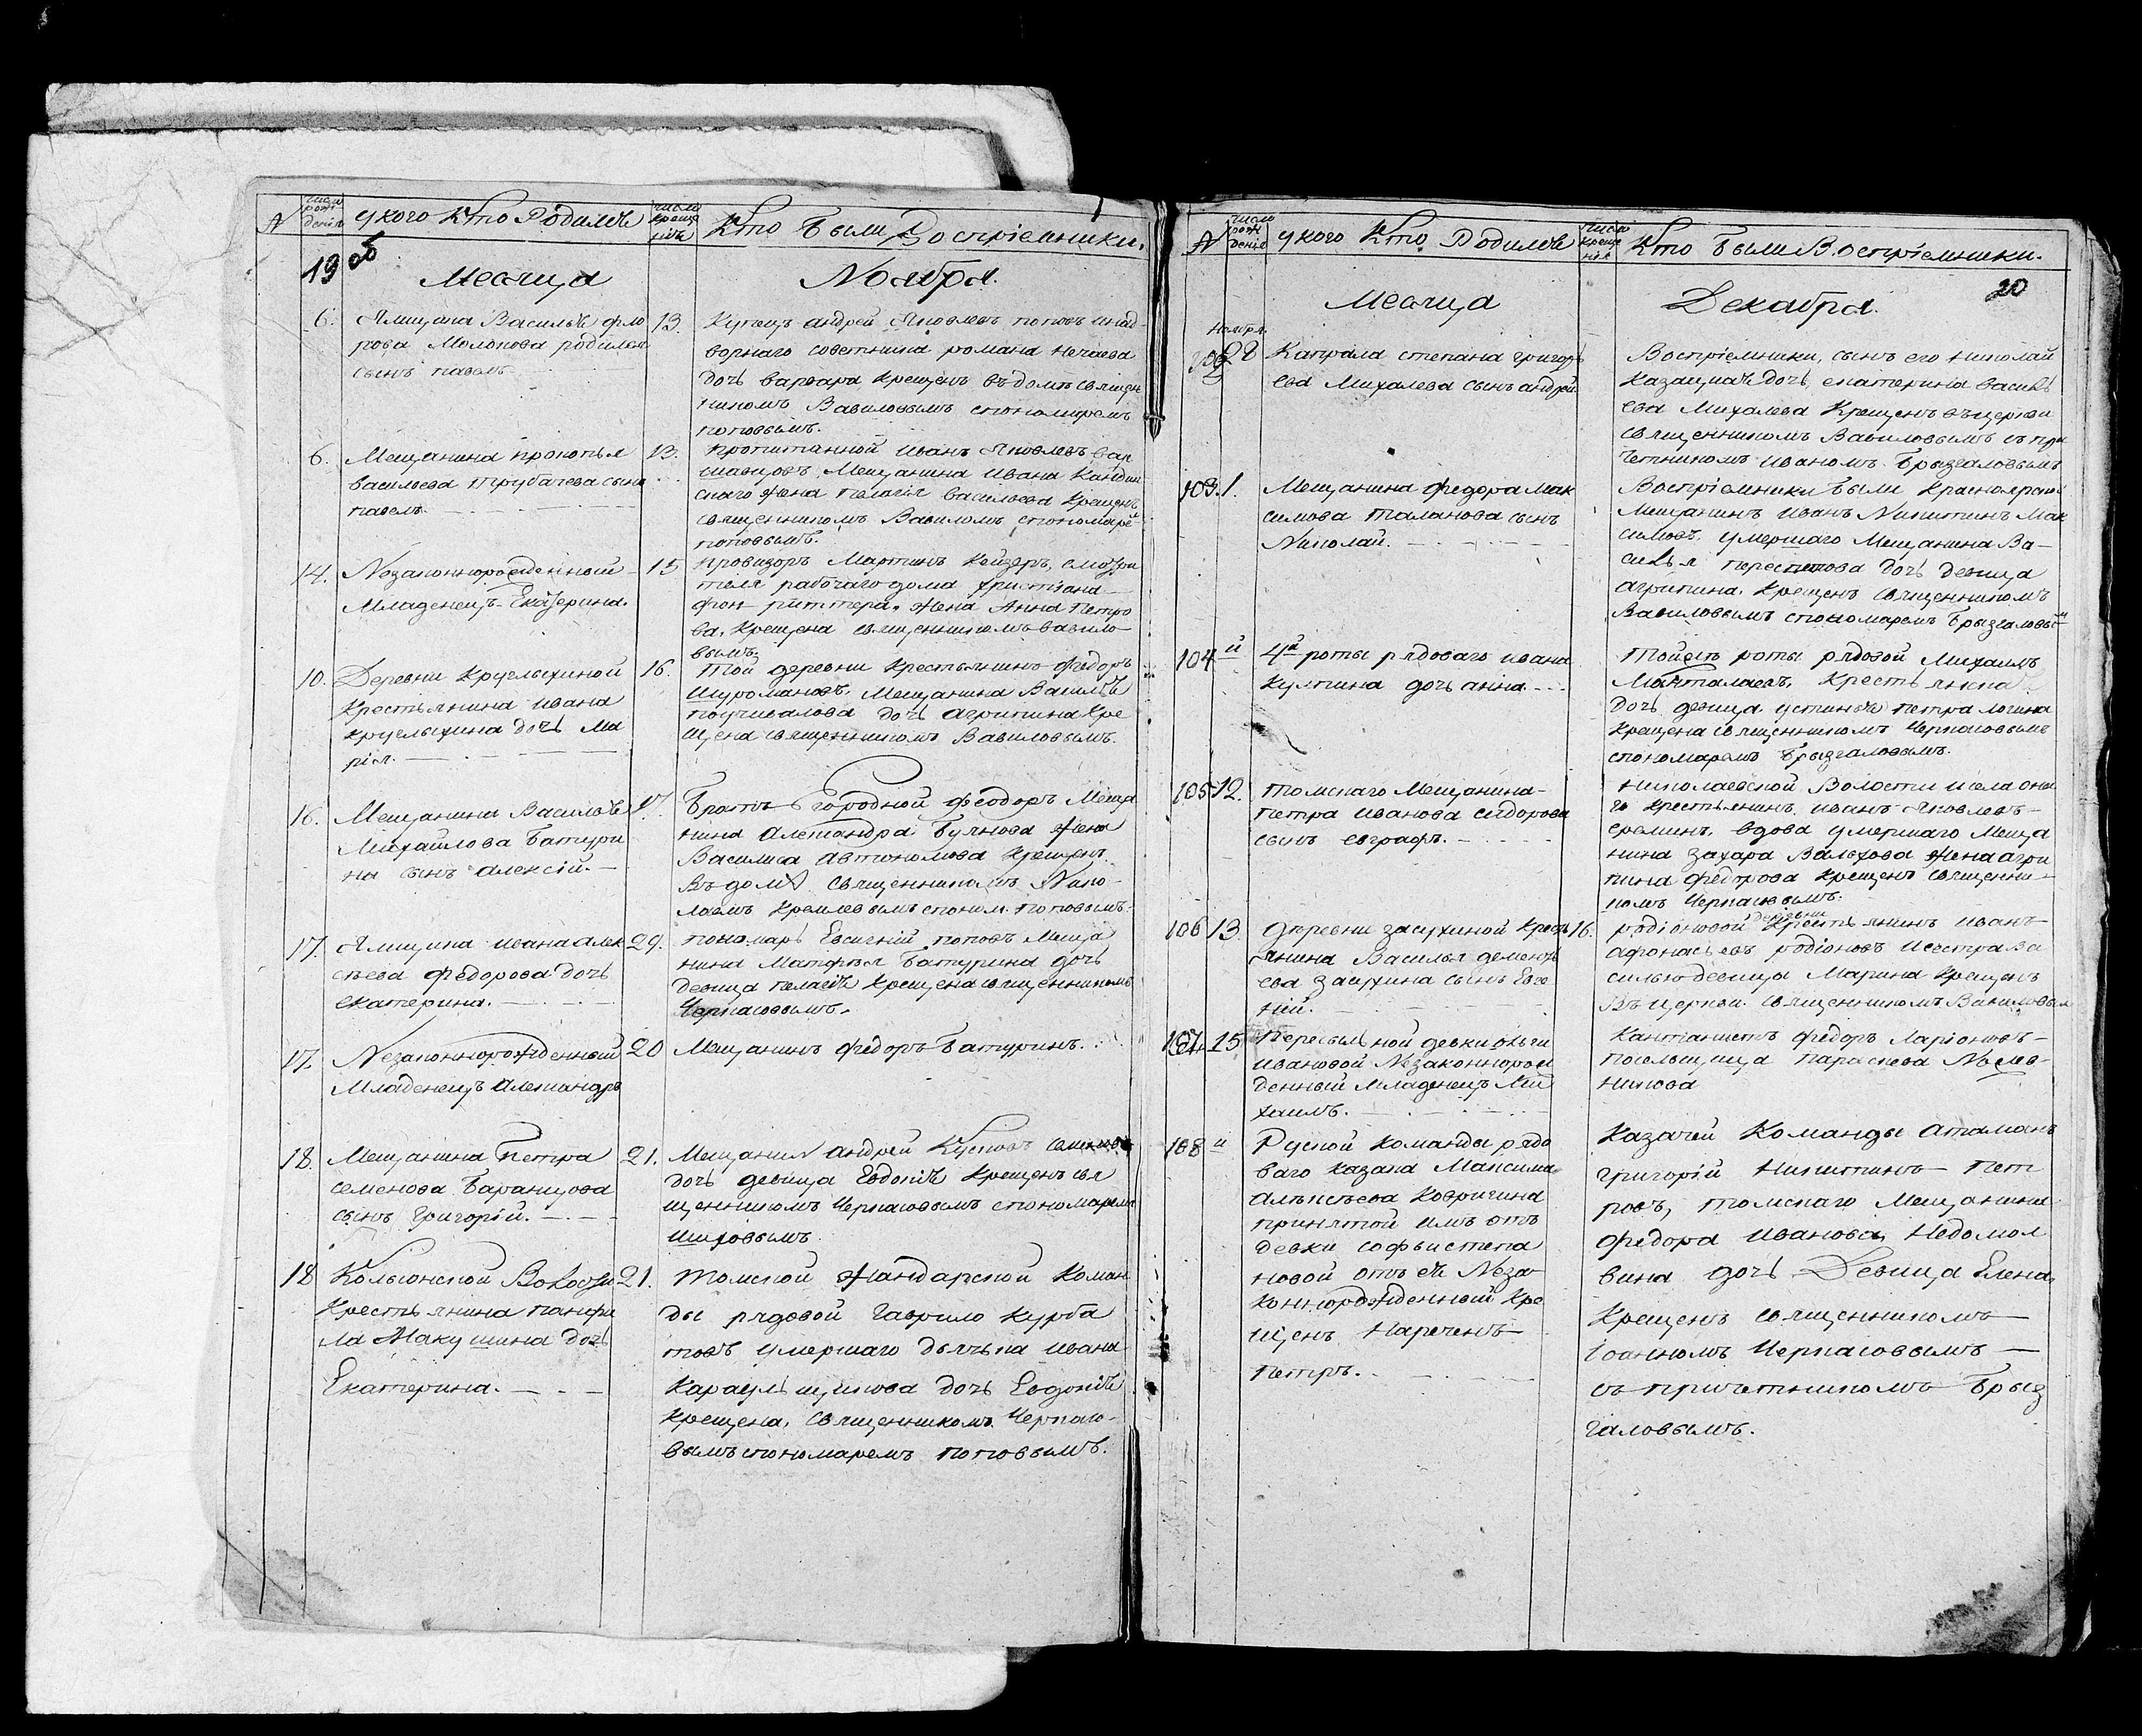 № число рождения у кого кто Родился число крещения Кто были Восприемники.
19 об
Месяца Ноября.
6. Ямщика Василья Фло
рова Молокова родился
сынъ павелъ
13. Купецъ андрей Яковлевъ поповъ инад
ворнаго советника романа нечаева
дочь варвара крещенъ въ доме священ
никомъ Вавиловымъ спономаремъ
поповымъ.
6. Мещанина прокопья
васильева трубачева сынъ
павелъ.
13. пропитанной иванъ Яковлевъ вар
шавцовъ, Мещанина ивана
скаго жена пелагія васильева крещенъ
священникомъ Вавиломъ спономаре
поповымъ.
14. Незаконнорожденный
Младенецъ Екатерина.
15 провизоръ Мартинъ Кейзеръ, смотри
теля рабочаго дома христіана
фон риттера, жена Анна петро
ва. крещена священникомъ вавило
вымъ.
10. Деревни Круглыхиной
крестьянина ивана
круглыхина дочь Ма
рія.
16. Той деревни крестьянинъ федоръ
Шуромановъ, Мещанина Василья
поучивалова дочь агрипина кре
щена священникомъ Вавиловымъ.
16. Мещанина Василья
Михайлова Батури
на сынъ алексій.
17. Братъ ево родной Феодоръ Меща
нина алетандра Буянова жена
Василиса автономова крещенъ
въ доме священникомъ Нико
лаемъ кремлевымъ споном. поповымъ
17. Ямщика ивана алек
сеева федорова дочь
екатерина.
29. пономарь Евсигній поповъ Меща
нина Матфея Батурина дочь
девица пелагія крещена священникомъ
Черкасовымъ.
17. Незаконнорожденный
Младенецъ алетандръ
20 Мещанинъ федоръ Батуринъ.
18. Мещанина Петра
семенова Баранцова
сынъ григорій.
21. Мещанинъ андрей Кусковъ
дочь девица Евдокія крещенъ свя
щенникомъ Черкасовымъ спономаремъ
Шиховымъ
18 Кольіонской Волости
крестьянина панфи
ла Макушина дочь
Екатерина.
21. томской жандарской коман
ды рядовой гаврило курба
товъ умершаго дьячка ивана
караульщикова дочь Евдокія
крещена, священникомъ. Черкасо
вымъ спономаремъ поповымъ.
№ число рождения у кого Кто Родился число крещения Кто были Восприемники.
20
Месяца Декабря.
ноября.
28 Капрала степана григорь
ева Михалева сынъ андрей
Воспріемники, сынъ его николай
казацкая дочь, екатерина василь
ева Михалева крещенъ въ церкви
священникомъ Вавиловымъ съ при
четникомъ иваномъ Брызгаловымъ
103. 1. Мещанина федора Мак
симова таланова сынъ
Николай.
Воспріемники были красноярской
мещанинъ иванъ Никитинъ Мак
симовъ. умершаго Мещанина Ва
силья дочь девица
агрипина. крещенъ священникомъ
Вавиловымъ спономаремъ Брызгаловы
104 й 4й роты рядоваго ивана
кулпина дочь анна.
тойже роты рядовой Михаилъ
крестьянина
дочь девица устинья петра логина
крещена священникомъ Черкасовымъ
спономаремъ Брызгаловымъ.
105 12. томскаго Мещанина
петра иванова сидорова
сынъ евграфъ.
николаевской Волости
крестьянинъ, иванъ Яковлевъ
ереминъ, вдова умершаго Меща
нина захара Валохова жена агри
пина федорова крещенъ священни
комъ Черкасовымъ.
106 13. деревни засухиной кресть
янина Василья дементь
ева засухина сынъ Евге
ній.
16. родіоновой деревни крестьянинъ иванъ
афонасьевъ родіоновъ исестра ва
силью девицы Марина крещенъ
въ церкви. священникомъ Вавиловым
107. 15 Пересыльной девки ольги
ивановой Незаконнорож
денный младенецъ Ми
хаилъ.
кантонистъ федоръ ларіоновъ
посельщица параскева
108 й Руской команды рядо
ваго казака Максима
алексеева ковригина
принятой имъ отъ
девки софьи степа
новой отъ ея Неза
коннорожденный кре
щенъ нареченъ
петръ.
Казачей Команды атаманъ
григорій никитинъ пет
ровъ, томскаго Мещанина
федора иванова недомол
вина дочь Девица Елена
крещенъ священникомъ
іоанномъ Черкасовымъ
съ причетникомъ Брыз
галовымъ.